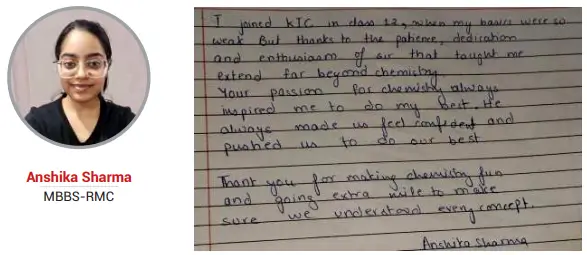 Anshika Sharma
MBBS-RMC
I joined KTC in class 12, when my basics were so
weak But thanks to the patience, dedication
and enthusiasm of sir that taught me
extend far beyond chemistry
Your passion for chemistry always
inspired me to do my best. He
always made us feel confident and
pushed us to do our best
Thank you for making chemistry fun
and going extra mile to make
sure we understood every concept.
Anshika Sharma